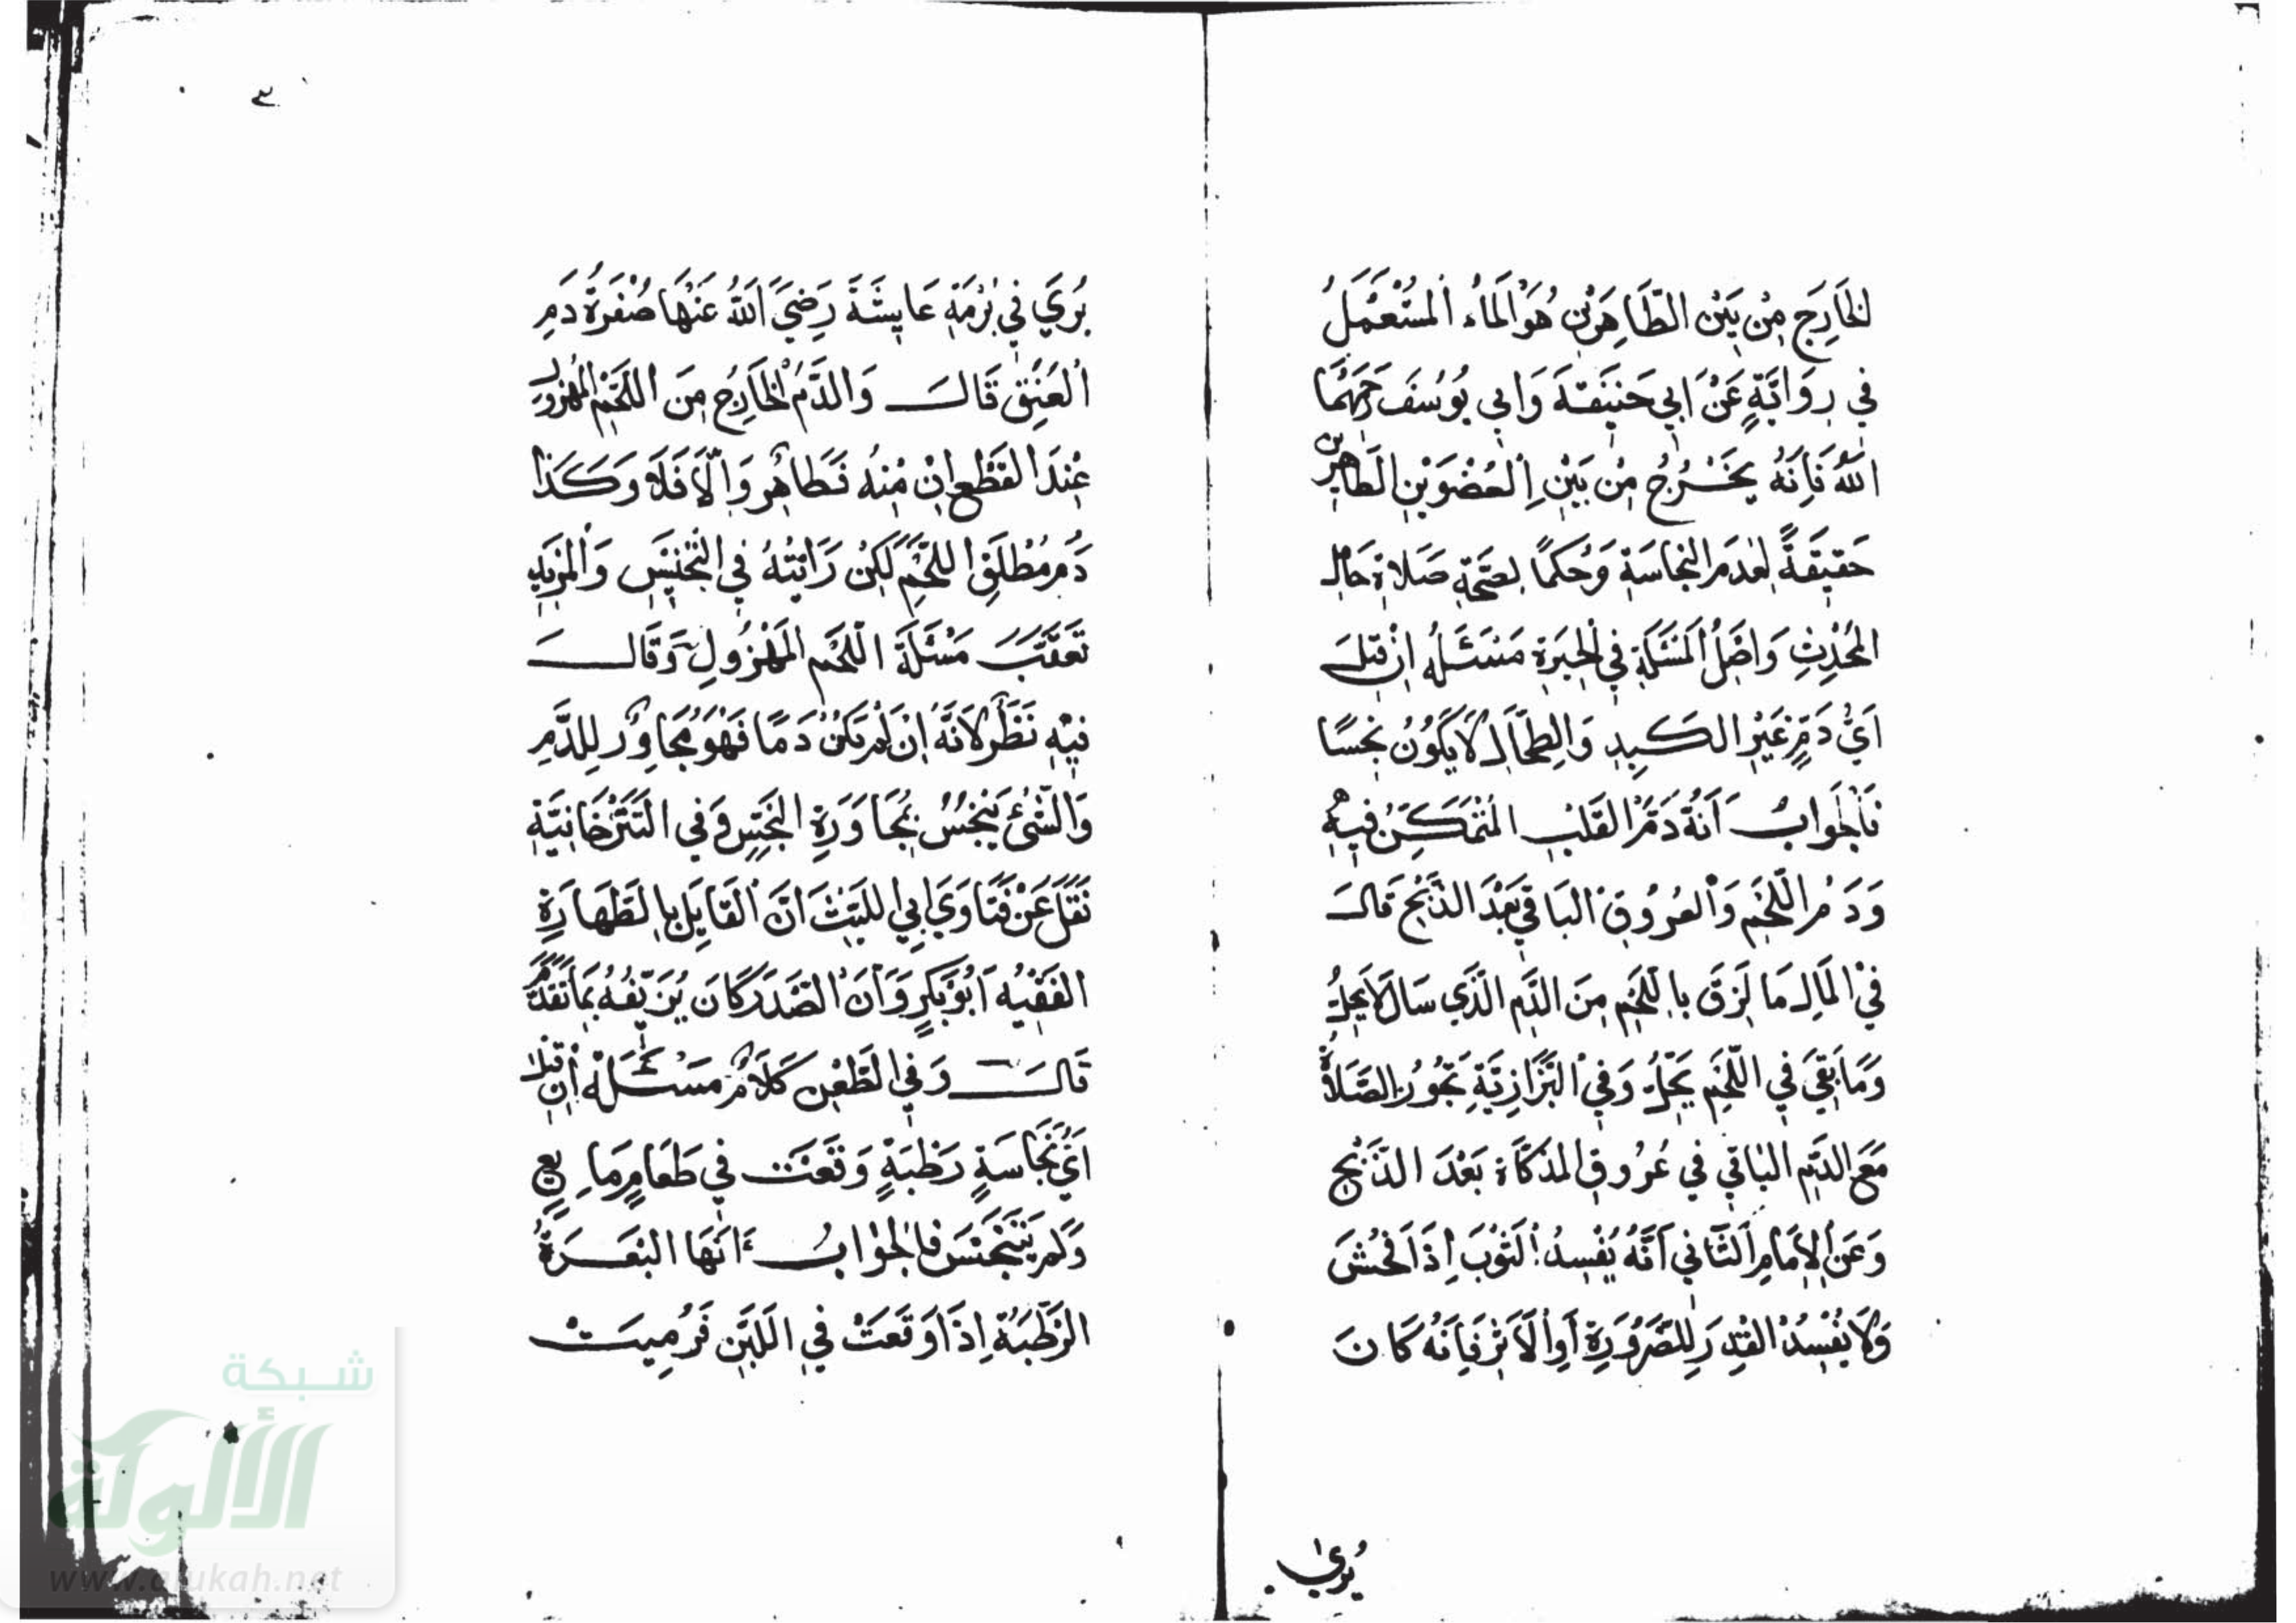 الخَارِجَ مِنْ بَيْنِ الطَّاهِرَيْنِ هُوَ الْمَاءُ الْمُسْتَعْمَلُ
في رِوَايَةٍ عَنْ ابي حَنِيفَةَ وَابي يُوسُفَ رَحِمَهُمَا
اللهُ فَاِنَّهُ يَخْرُجُ مِنْ بَيْنِ الْعُضْوَيْنِ الطَاهِرَين
حَقِيقَةً لِعَدَمِ النجَاسَةِ وَحُكمًا لِصِحَّةِ صَلَاةِ حَامِل
المُحْدِثِ وَاصْلُ الْمَسْئَلَةِ في الْحِيَرَةِ مَسْئَلَه اِنْ قِيلَ
اَيُّ دَمٍ غَيْرِ الكَبِدِ وَالطِحَال لَا يَكُونُ نَجِسًا
فَالْجَوابُ اَنَّهُ دَمُ القَلْبِ المُتَمَكِّنُ فِيهِ
وَدَمُ اللَّحْمِ وَالْعُرُوقِ البَاقي بَعْدَ الذَّبْحِ قَالَ
في الْمَالِ مَا لَزِقَ بِاللَّحْمِ مِنَ الدَّمِ الَّذي سَالَ لَا يَحِلُّ
وَمَا بَقِيَ في اللَّحْمِ يَحِلُّ وَفي الْبَزَّازِيَّةِ تَجُوزُ الصَّلَاةُ
مَعَ الدَّمِ البَاقي في عُرُوقِ المُذَكَّاةِ بَعْدَ الذَّبْحِ
وَعَنِ الاِمَامِ الثَّاني اَنَّهُ يُفْسِدُ الثَوْبَ اِذَا فَحُشَ
وَلَا يُفْسِدُ الْقِدْرَ لِلضَّرُورَةِ اَوِ الْاَثَرِ فَاِنَّهُ كَانَ
يُرى
يُرَي في بُرْمَةِ عَايِشَةَ رَضِيَ اللهُ عَنْهَا صُفْرَةُ دَمِ
الْعُنُقِ قَالَ وَالدَّمُ الْخَارِجُ مِنَ اللَّحْمِ المهزول
عِنْدَ الْقَطْعِ اِنْ مِنْهُ فَطَاهِرٌ وَاِلَّا فَلَا وَكَذَا
دَمُ مُطْلَقِ اللَّحْمِ لَكِنْ رَاَيْتُهُ في التَّجْنِيسِ وَالْمَزِيدِ
تَعَقَّبَ مَسْئَلَةَ اللَّحْمِ الْمَهْزُولِ وَقَالَ
فِيهِ نَظَرٌ لِاَنَّهُ اِنْ لَمْ يَكُنْ دَمًا فَهْوَ مُجَاوِرٌ لِلدَّمِ
وَالشَّئُ يَنْجُسُ بِمُجَاوَرَةِ النَّجِسِ وَفي التَتَرْخَانِيَّةِ
نَقَلَ عَنْ فَتَاوَي ابي اللَيْثِ اَنَّ الْقَايِلَ بِالطَّهَارَةِ
الفَقِيهُ اَبُو بَكْرٍ وَاَنَّ الصَّدْرَ كَانَ يُزَيِّفُهُ بِمَا تَقَدَّمَ
قَالَ وَفي الطَّعْنِ كَلَامٌ مَسْئَلَه اِنْ قيلَ
اَيُّ نَجَاسَةٍ رَطْبَةٍ وَقَعَتْ في طَعَامٍ مَايِعٍ
وَلَمْ يَتَنَجَّسْ فَالْجَوابُ اَنَّهَا البَعَرَةُ
الرَّطْبَةُ اِذَا وَقَعَتْ في اللَّبَنِ فَرُمِيَتْ
٣
شبكة
الألوكة
www.alukah.net